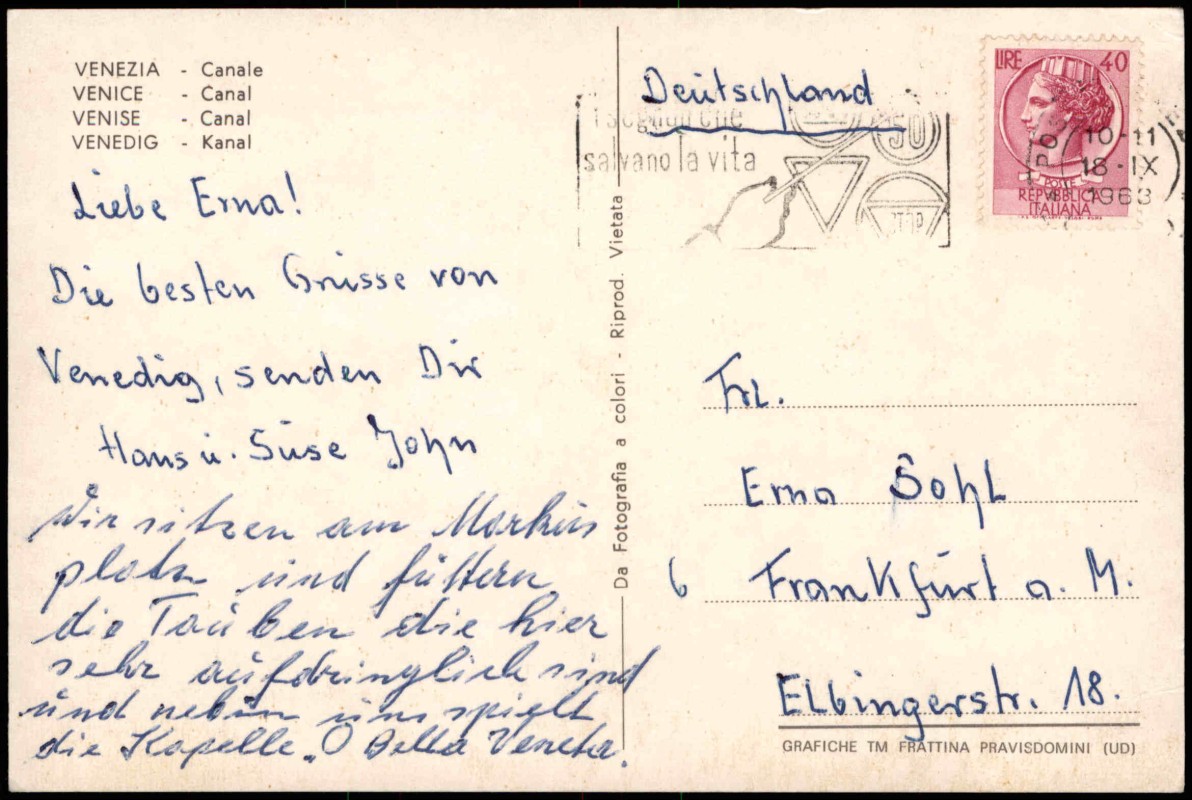 VENEZIA - Canale
VENICE - Canal
VENISE - Canal
VENEDIG - Kanal
Liebe Erna!
Die besten Grüsse von
Venedig, senden Dir
Hans u. Süse John
Wir sitzen am Markus
platz und füttern
die Tauben die hier
sehr aufdringlich sind
und neben uns spielt
die Kapelle „O Bella Veneta.
Da Fotografia a colori - Riprod. Vietata
Deutschland
i segnali che
salvano la vita
50
STOP
LIRE 40
POSTE
REPVBBLICA
ITALIANA
10-11
18-IX
1963
Frl.
Erna Sohl
6 Frankfurt a. M.
Elbingerstr. 18.
GRAFICHE TM FRATTINA PRAVISDOMINI (UD)